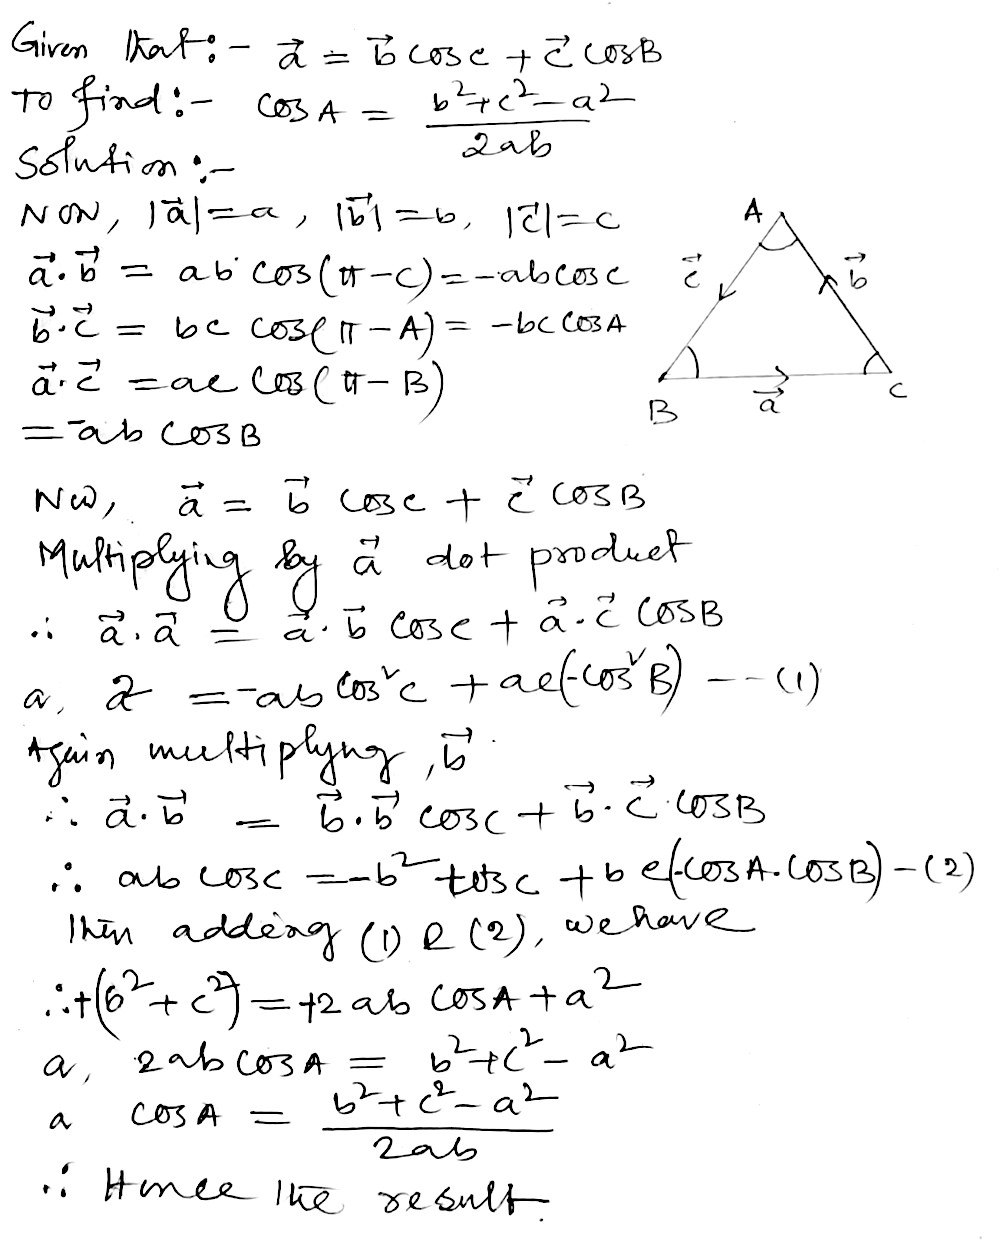 Given that:- a⃗ = b⃗ cosc + c⃗ cosB
To find:- cosA = (b²+c²-a²)/2ab
Solution:-
Now, |a⃗|=a, |b⃗|=b, |c⃗|=c
a⃗.b⃗ = ab cos(π-C)=-abcosc
b⃗.c⃗ = bc cos(π-A)= -bc cosA
a⃗.c⃗ =ac cos(π-B)
=-ab cosB
A
c⃗
b⃗
B
a⃗
C
Now, a⃗ = b⃗ cosc + c⃗ cosB
Multiplying by a⃗ dot product
∴ a⃗.a⃗ = a⃗.b⃗ cosc + a⃗.c⃗ cosB
a, 2 =-ab cos²c + ac(-cos²B) --(1)
Again multiplyng, b⃗
∴ a⃗.b⃗ = b⃗.b⃗ cosc + b⃗.c⃗ cosB
∴ ab cosc =-b² cosc + bc(-cosA.cosB)-(2)
Then adding (1) & (2), we have
∴+(b²+c²)=+2ab cosA+a²
a, 2abcosA = b²+c²-a²
a cosA = (b²+c²-a²)/2ab
∴ Hence the result.